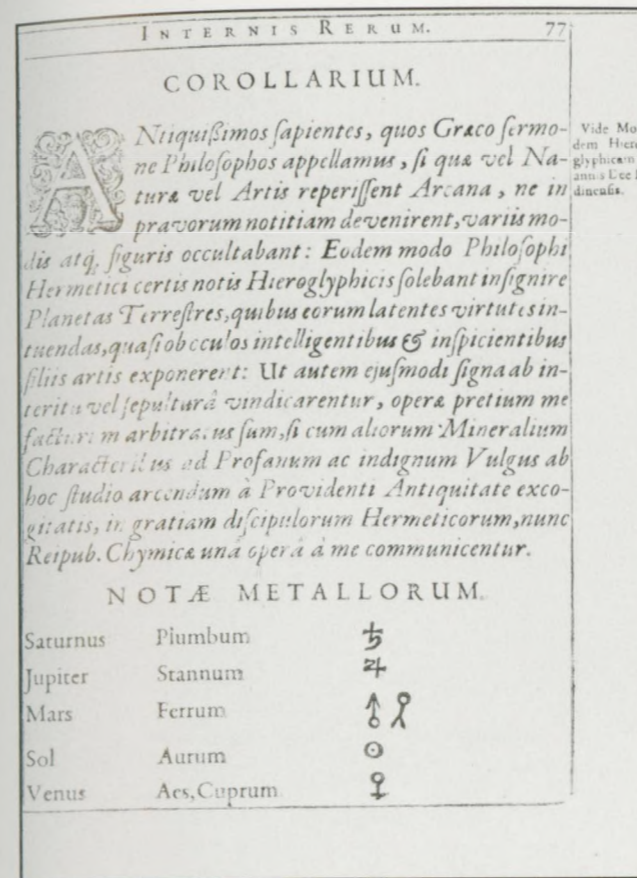 INTERNIS RERUM. 77
COROLLARIUM.
ANtiquißimos ſapientes, quos Græco ſermo-
ne Philoſophos appellamus, ſi quæ vel Na-
turæ vel Artis reperiſſent Arcana, ne in
pravorum notitiam devenirent, variis mo-
dis atq; figuris occultabant: Eodem modo Philoſophi
Hermetici certis notis Hieroglyphicis ſolebant inſignire
Planetas Terreſtres, quibus eorum latentes virtutes in-
tuendas, quaſi ob oculos intelligentibus & inſpicientibus
filiis artis exponerent: Ut autem ejuſmodi ſigna ab in-
teritu vel ſepulturâ vindicarentur, operæ pretium me
facturum arbitratus ſum, ſi cum aliorum Mineralium
Characteribus ad Profanum ac indignum Vulgus ab
hoc ſtudio arcendum à Providenti Antiquitate exco-
gitatis, in gratiam diſcipulorum Hermeticorum, nunc
Reipub. Chymicæ unâ operâ à me communicentur.
Vide Mo
dem Hiero
glyphicam
annis Dee
dinenſis.
NOTÆ METALLORUM.
Saturnus Plumbum ♄
Jupiter Stannum ♃
Mars Ferrum
Sol Aurum ☉
Venus Aes, Cuprum ♀